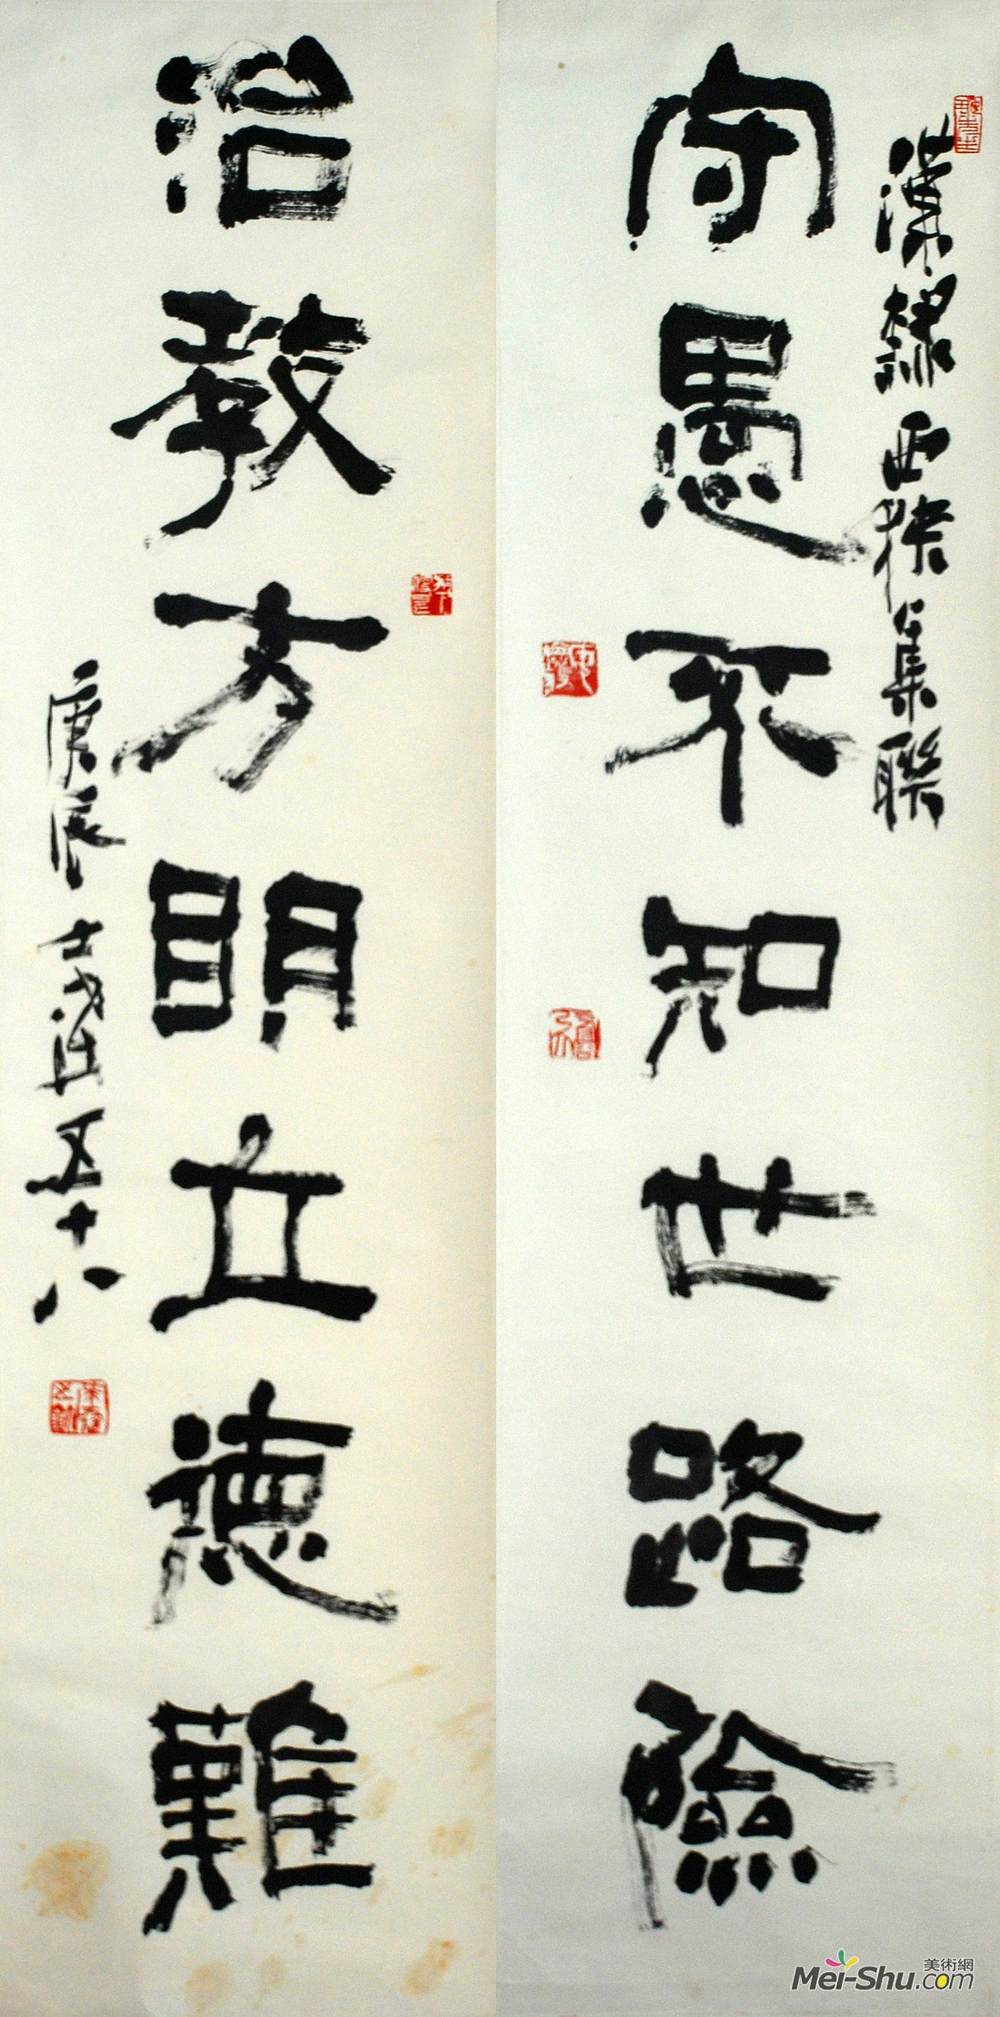 漢隸西狹集聯
守愚不知世路險
治教方明立德難
庚辰 五十八
美術網
Mei-Shu.com